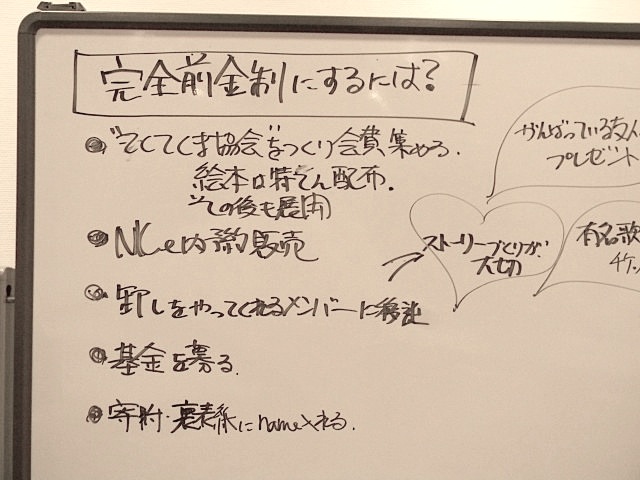 完全前金制にするには?
"そくてくま協会"をつくり会費集める.
絵本は特てん配布.
その後も展開
NCe内予約販売
卸しをやってくれるメンバーに移譲
基金を募る.
寄附・裏表紙にname入れる.
がんばっている友人
プレゼント
ストーリーづくりが
大切
有名歌
チケッ